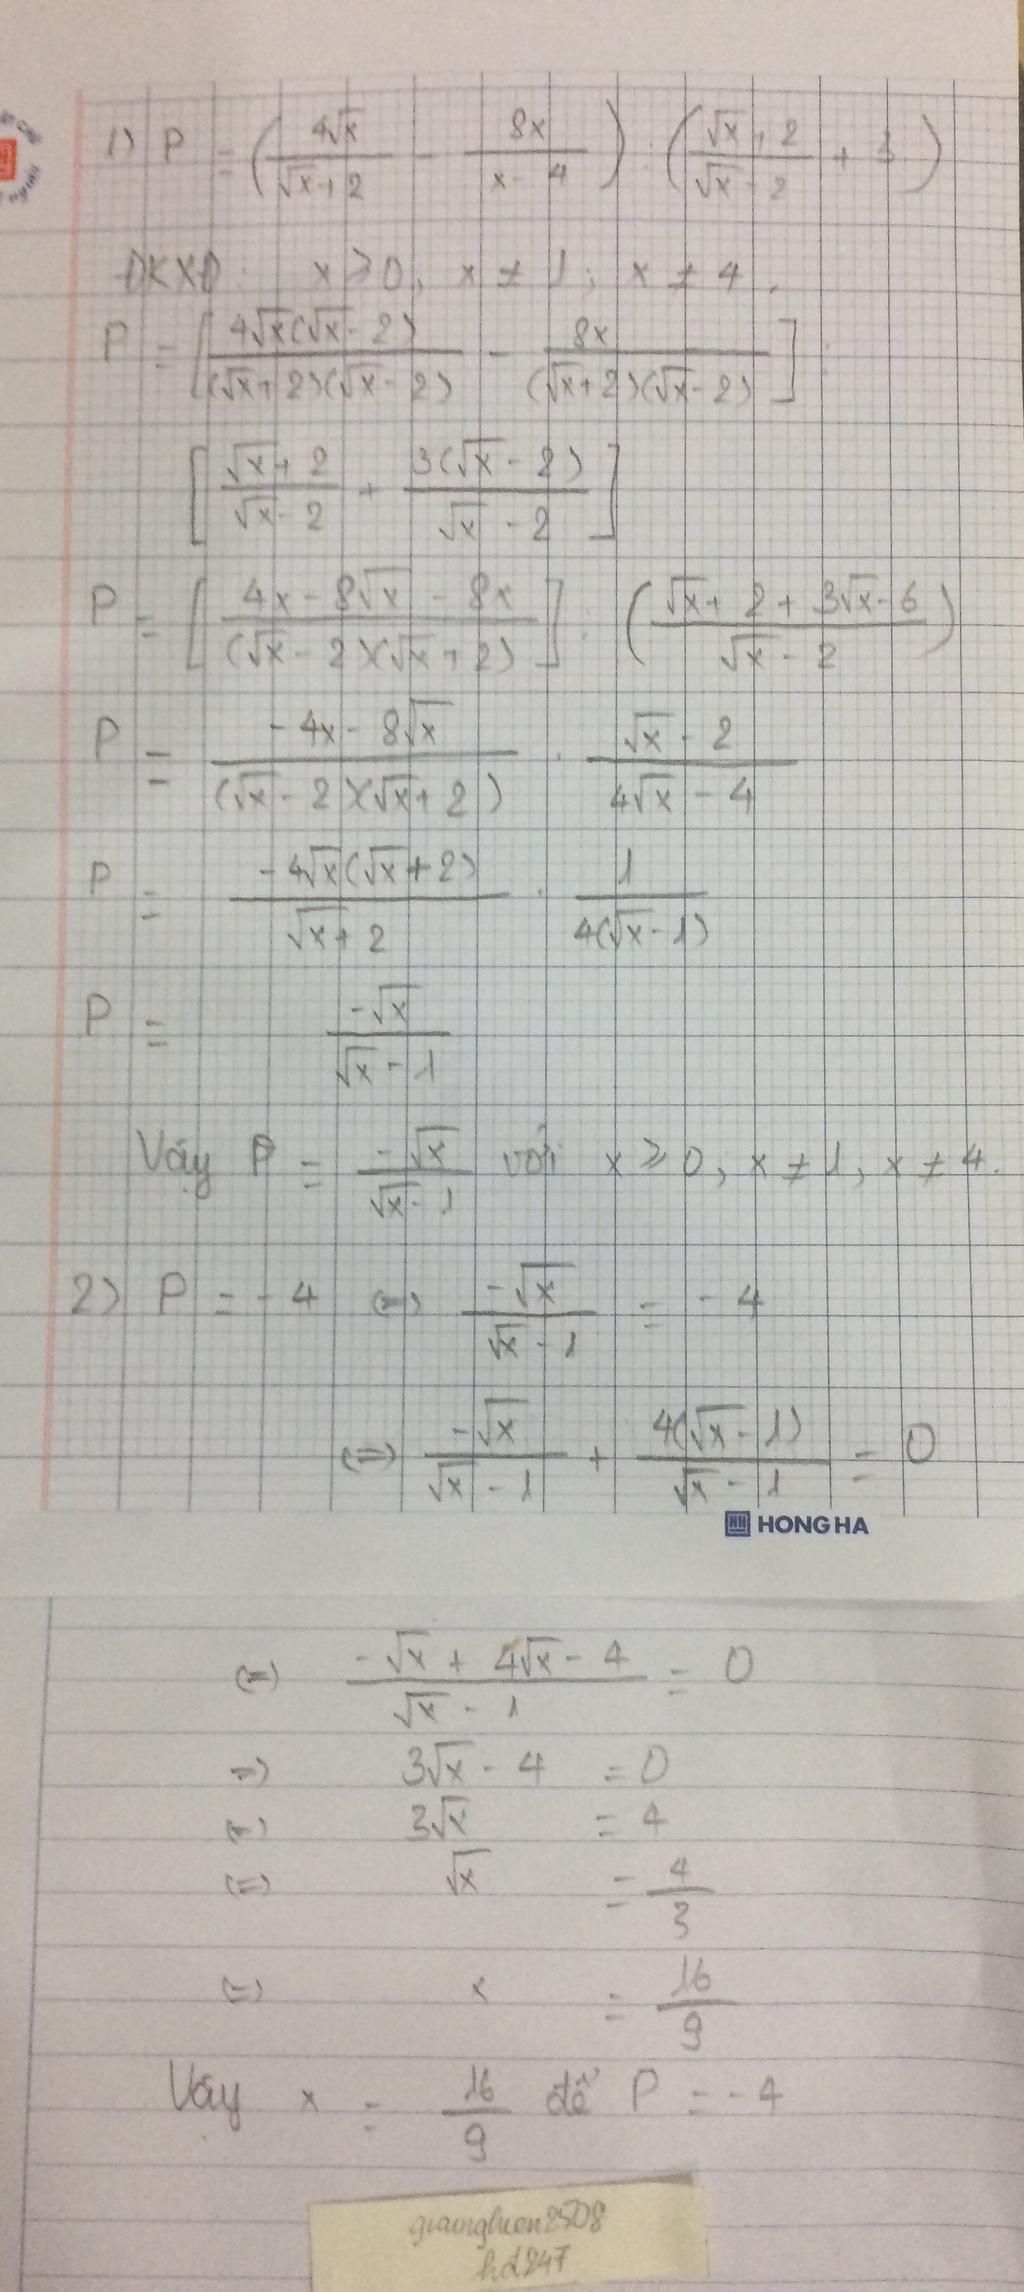 1) P = (4√x/(√x+2) - 8x/(x-4)) : ((√x+2)/(√x-2) + 3)
ĐKXĐ: x ≥ 0, x ≠ 1; x ≠ 4.
P = [4√x(√x-2)/((√x+2)(√x-2)) - 8x/((√x+2)(√x-2))] :
[(√x+2)/(√x-2) + 3(√x-2)/(√x-2)]
P = [(4x-8√x-8x)/((√x-2)(√x+2))] : ((√x+2+3√x-6)/(√x-2))
P = (-4x-8√x)/((√x-2)(√x+2)) . (√x-2)/(4√x-4)
P = -4√x(√x+2)/(√x+2) . 1/(4(√x-1))
P = -√x/(√x-1)
Vậy P = -√x/(√x-1) với x ≥ 0, x ≠ 1, x ≠ 4.
2) P = -4 (=) -√x/(√x-1) = -4
(=) -√x/(√x-1) + 4(√x-1)/(√x-1) = 0
HONG HA
(=) (-√x+4√x-4)/(√x-1) = 0
=) 3√x-4 = 0
(=) 3√x = 4
(=) √x = 4/3
(=) x = 16/9
Vậy x = 16/9 để P = -4
hd247